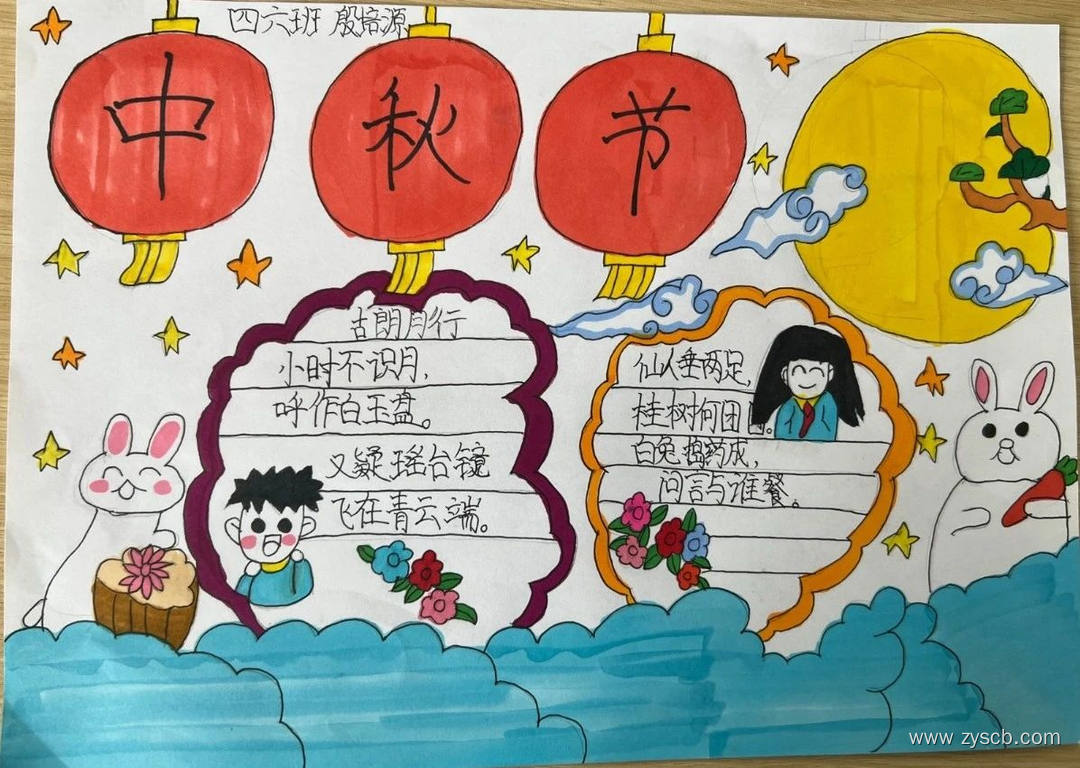 四六班 殷培源
中秋节
古朗月行
小时不识月,
呼作白玉盘。
又疑瑶台镜
飞在青云端。
仙人垂两足,
桂树何团
白兔捣药成,
问言与谁餐。
www.zyscb.com